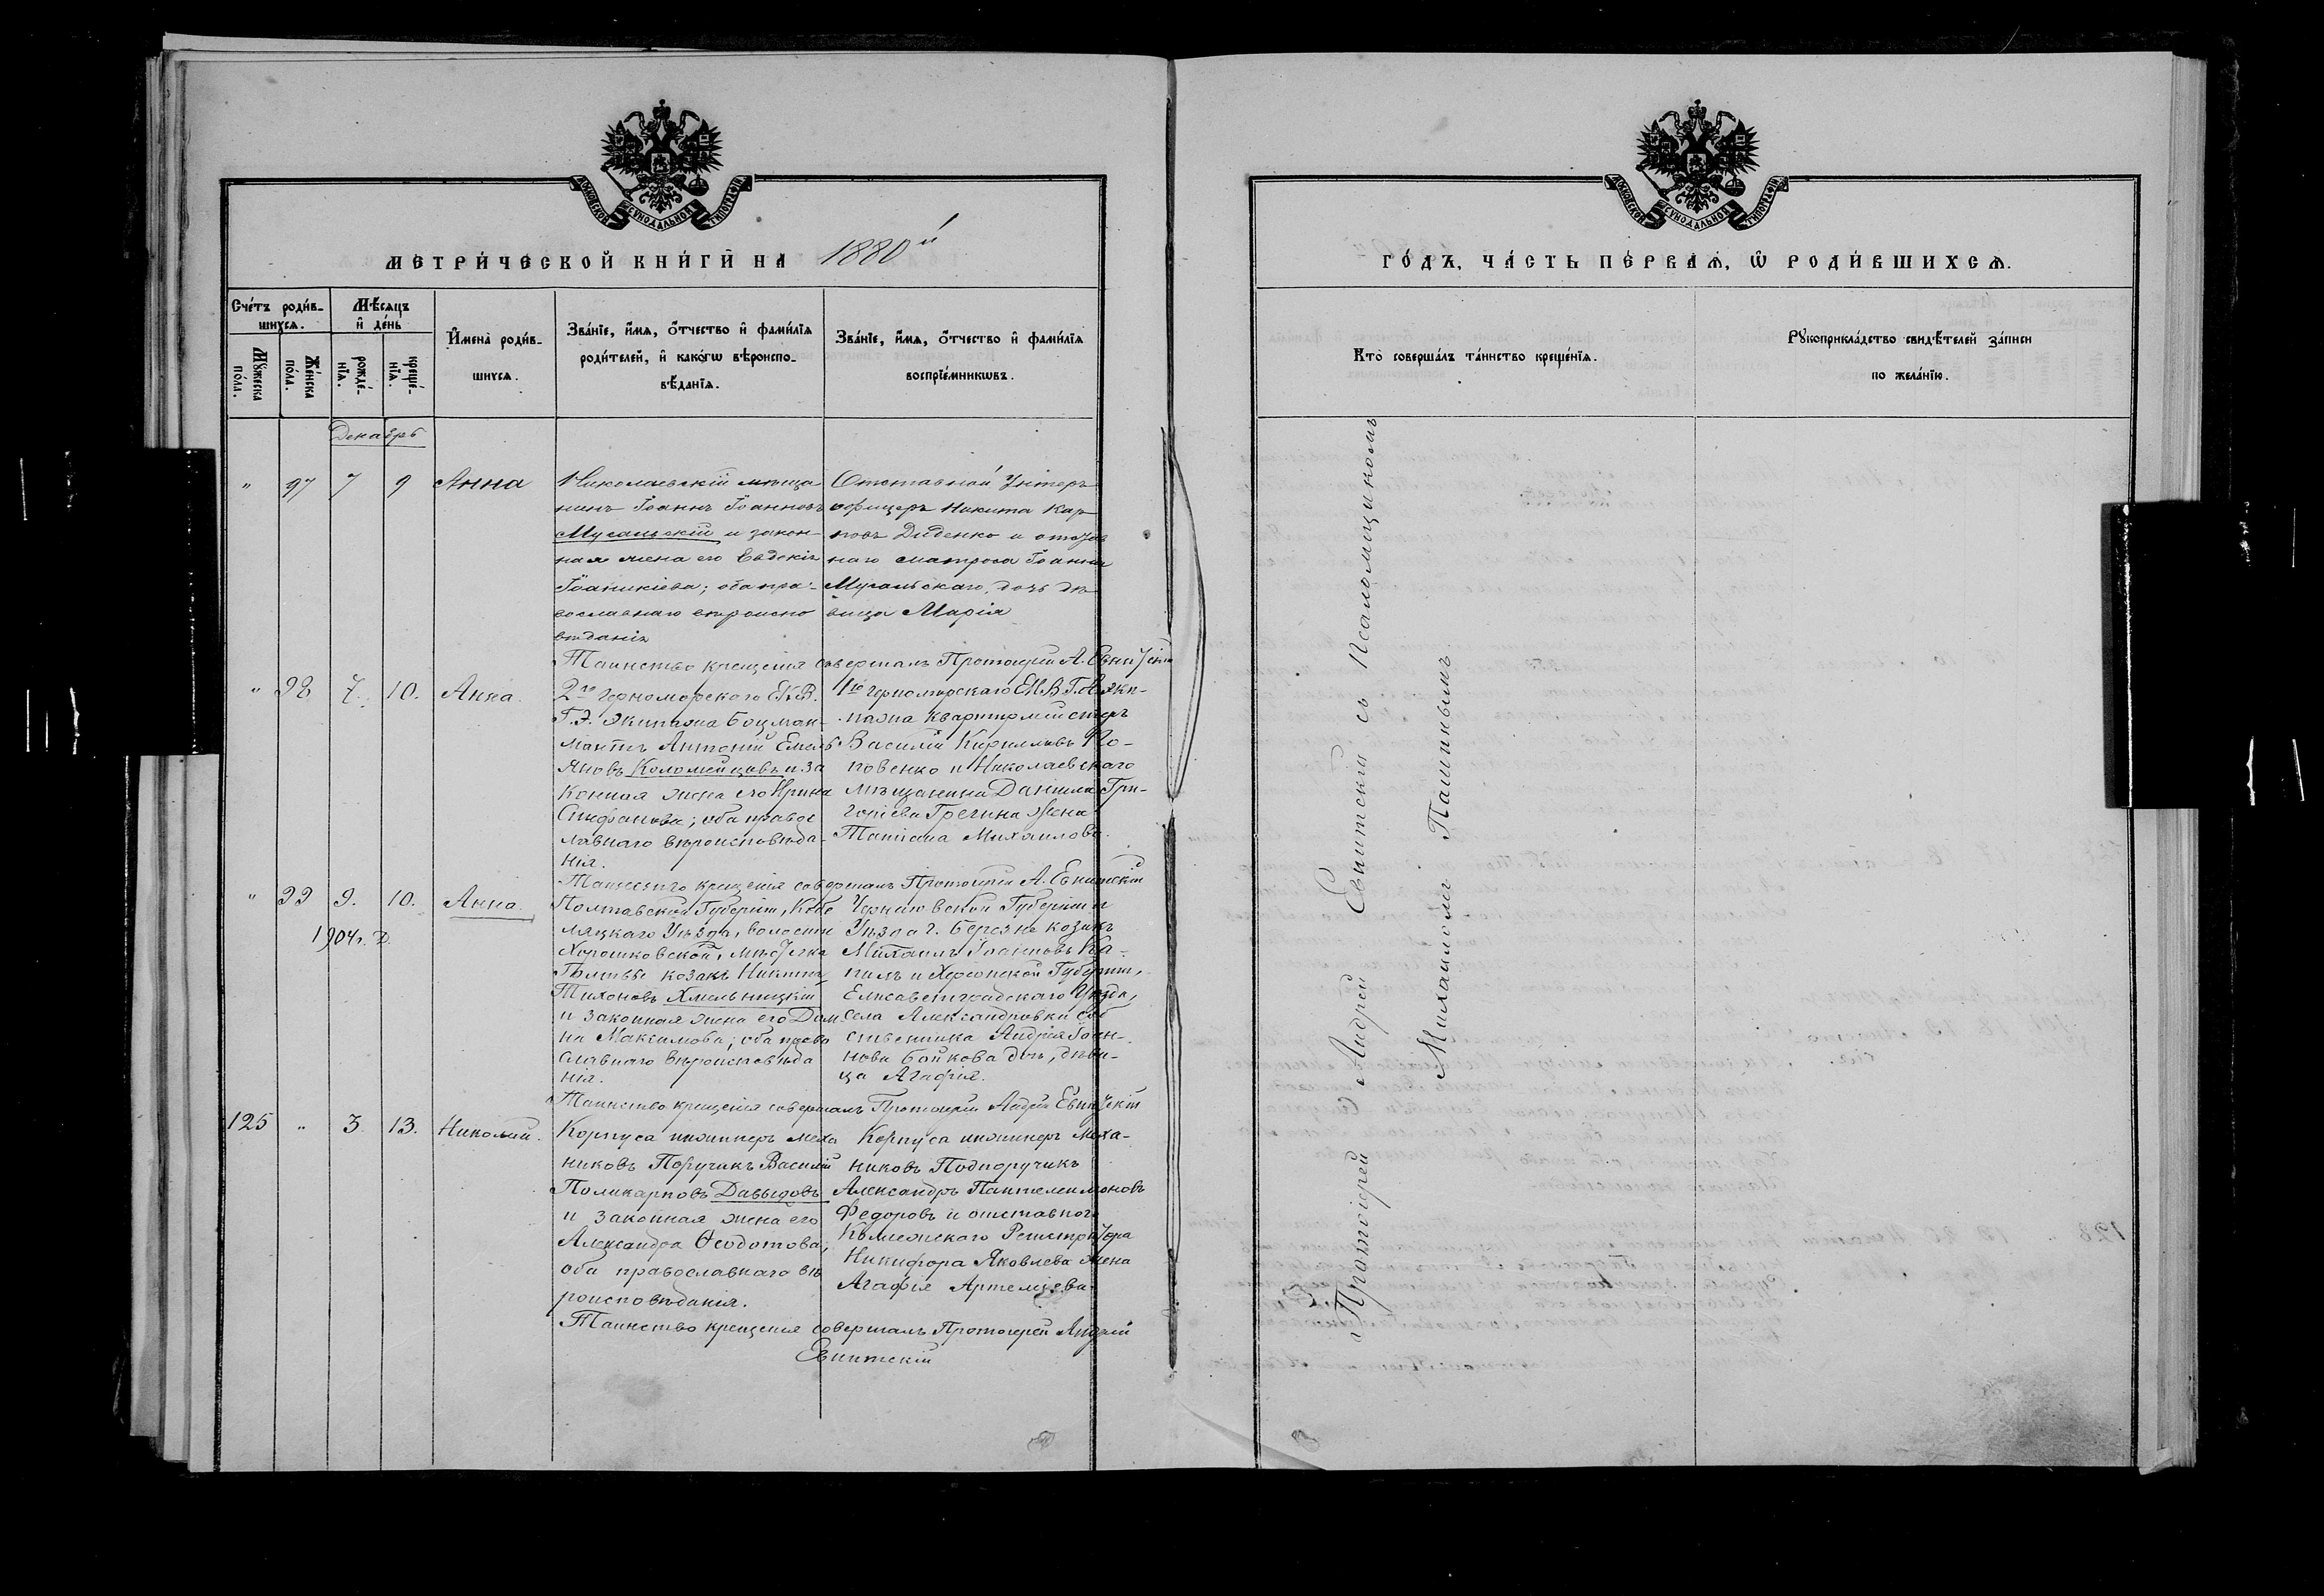 МОСКОВСКОЙ СѴНОДАЛЬНОЙ ТИПОГРАФІИ
МЕТРИ́ЧЕСКОЙ КНИ́ГИ НА 1880й
Сче́тъ роди́в-
шихся.
Мѣ́сяцъ
и҆ де́нь
Мꙋ́жеска
по́ла.
Же́нска
по́ла.
рожде́-
нїѧ.
креще́-
нїѧ.
И҆мена̀ роди́в-
шихсѧ.
Зва́нїе, и҆́мѧ, ѻ҆́тчество и҆ фами́лїѧ
роди́телей, и҆ како́гѡ вѣроиспо-
вѣ́данїѧ.
Зва́нїе, и҆́мѧ, ѻ҆́тчество и҆ фами́лїѧ
воспрїе́мникѡвъ.
Декабрь
" 97 7 9 Анна
Николаевскій мѣща-
нинъ Іоаннъ Іоанновъ
Мусальскій и закон-
ная жена его Евдокія
Іоаникіева; оба пра-
вославнаго вѣроиспо
вѣданія
Отставной Унтеръ
офицеръ Никита Кар
повъ Диденко и отстав
наго матроса Іоанна
Мусальскаго, дочь дѣ
вица Марія
Таинство крещенія совершалъ Протоіерей А. Евнитскій
" 98 7. 10. Анна.
2го Черноморскаго Е.К.В.
Г.Э. экипажа Боцман-
матъ Антоній Емель
яновъ Коломейцовъ и за
конная жена его Ирина
Стефанова; оба правос
лавнаго вѣроисповѣда-
нія.
1го Черноморскаго Е.И.В. Г.А. эки-
пажа квартирмейстеръ
Василій Кирилловъ По-
повенко и Николаевскаго
мѣщанина Даніила Гри-
горіева Гречина жена
Татіана Михаилова.
Таинство крещенія совершалъ Протоіерей А. Евнитскій
" 99 9. 10. Анна.
1904г. Д.
Полтавской Губерніи, Кобе
ляцкаго Уѣзда, волости
Хорошковской, мѣстечка
козакъ Никита
Тихоновъ Хмельницкій
и законная жена его Дом
на Максимова; оба право
славнаго вѣроисповѣда
нія.
Черниговской Губерніи и
Уѣзда г. Березне козакъ
Михаилъ Іоанновъ Ка-
пилъ и Херсонской Губерніи,
Елисаветградскаго Уѣзда,
села Александровки соб
ственника Андрея Іоан-
нова Бойкова дочь, дѣви-
ца Агафія.
Таинство крещенія совершалъ Протоіерей Андрей Евнитскій
125 " 3. 13. Николай.
Корпуса инженеръ меха
никовъ Поручикъ Василій
Поликарповъ Давыдовъ
и законная жена его
Александра Ѳеодотова;
оба православнаго вѣ
роисповѣданія.
Корпуса инженеръ меха-
никовъ Подпоручикъ
Александръ Пантелеимоновъ
Федоровъ и отставного
Коллежскаго Регистратора
Никифора Яковлева жена
Агафія Артемьева
Таинство крещенія совершалъ Протоіерей Андрей
Евнитскій
МОСКОВСКОЙ СѴНОДАЛЬНОЙ ТИПОГРАФІИ
ГО́ДЪ, ЧА́СТЬ ПЕ́РВАѦ, Ѡ҆ РОДИ́ВШИХСѦ.
Кто̀ соверша́лъ та́инство креще́нїѧ.
Рꙋкоприкла́дство свидѣ́телей за́писи
по жела́нїю.
Протоіерей Андрей Евнитскій съ Псаломщикомъ
Михаиломъ Пашинымъ.